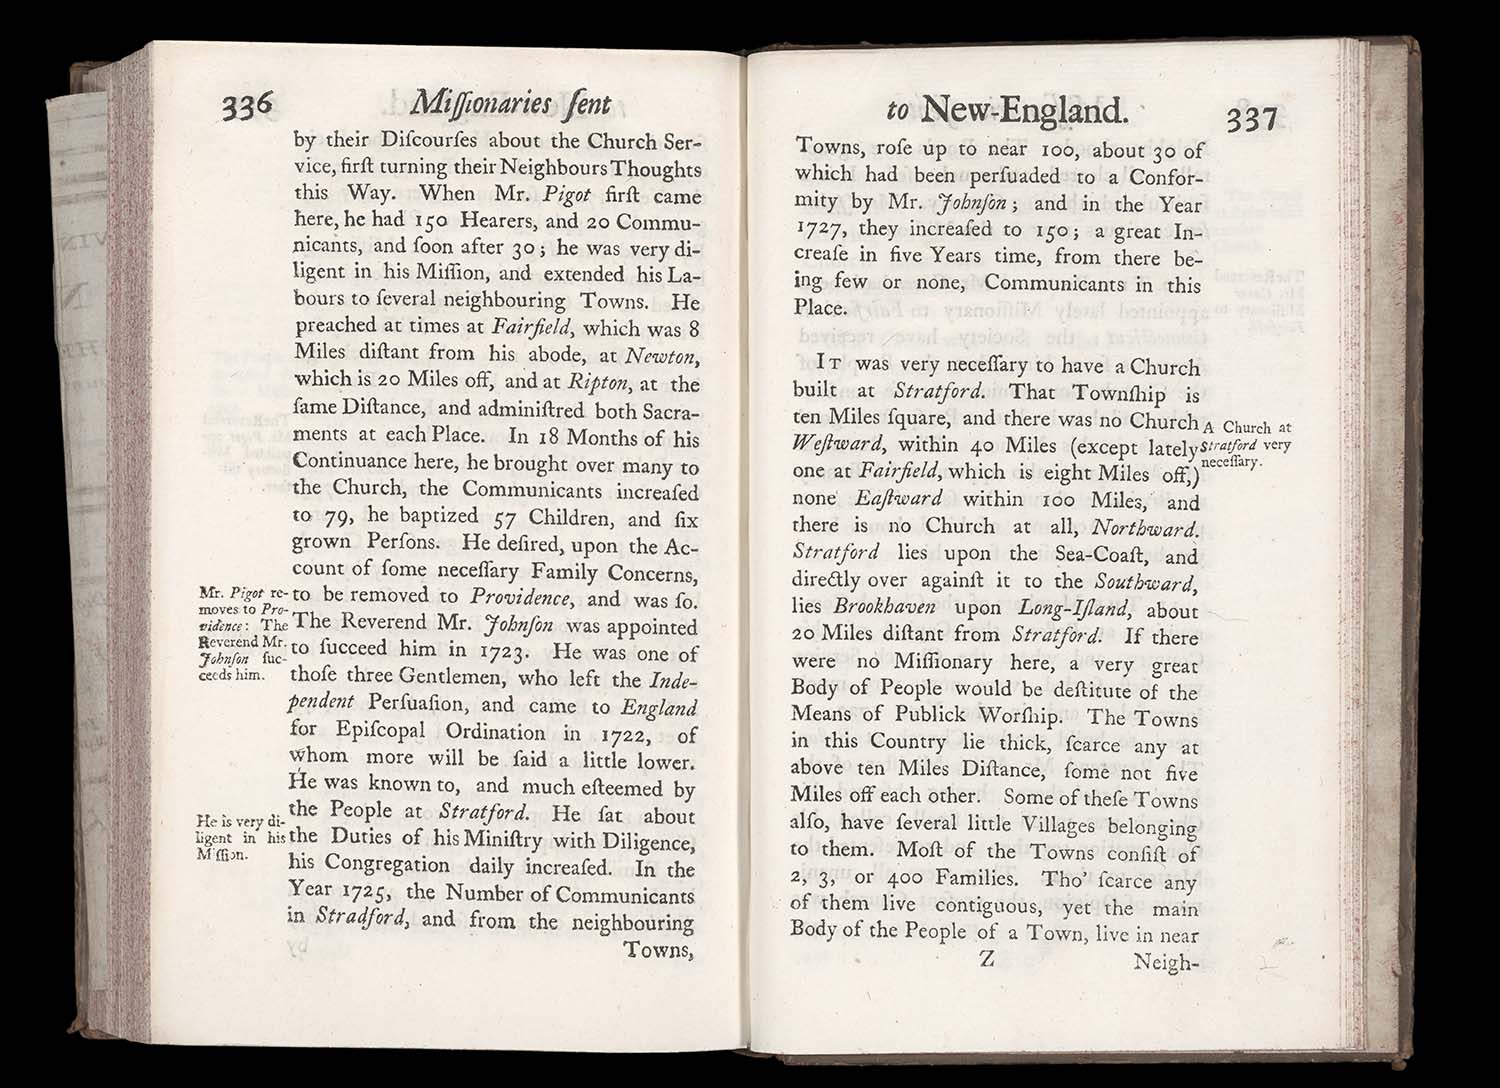 336
Miſſionaries ſent
by their Diſcourſes about the Church Ser-
vice, firſt turning their Neighbours Thoughts
this Way. When Mr. Pigot firſt came
here, he had 150 Hearers, and 20 Commu-
nicants, and ſoon after 30; he was very di-
ligent in his Miſſion, and extended his La-
bours to ſeveral neighbouring Towns. He
preached at times at Fairfield, which was 8
Miles diſtant from his abode, at Newton,
which is 20 Miles off, and at Ripton, at the
ſame Diſtance, and adminiſtred both Sacra-
ments at each Place. In 18 Months of his
Continuance here, he brought over many to
the Church, the Communicants increaſed
to 79, he baptized 57 Children, and ſix
grown Perſons. He deſired, upon the Ac-
count of ſome neceſſary Family Concerns,
to be removed to Providence, and was ſo.
The Reverend Mr. Johnſon was appointed
to ſucceed him in 1723. He was one of
thoſe three Gentlemen, who left the Inde-
pendent Perſuaſion, and came to England
for Epiſcopal Ordination in 1722, of
whom more will be ſaid a little lower.
He was known to, and much eſteemed by
the People at Stratford. He ſat about
the Duties of his Miniſtry with Diligence,
his Congregation daily increaſed. In the
Year 1725, the Number of Communicants
in Stradford, and from the neighbouring
Towns,
Mr. Pigot re-
moves to Pro-
vidence: The
Reverend Mr.
Johnſon ſuc-
ceeds him.
He is very di-
ligent in his
Miſſion.
to New-England.
337
Towns, roſe up to near 100, about 30 of
which had been perſuaded to a Confor-
mity by Mr. Johnſon; and in the Year
1727, they increaſed to 150; a great In-
creaſe in five Years time, from there be-
ing few or none, Communicants in this
Place.
IT was very neceſſary to have a Church
built at Stratford. That Townſhip is
ten Miles ſquare, and there was no Church
Weſtward, within 40 Miles (except lately
one at Fairfield, which is eight Miles off,)
none Eaſtward within 100 Miles, and
there is no Church at all, Northward.
Stratford lies upon the Sea-Coaſt, and
directly over againſt it to the Southward,
lies Brookhaven upon Long-Iſland, about
20 Miles diſtant from Stratford. If there
were no Miſſionary here, a very great
Body of People would be deſtitute of the
Means of Publick Worſhip. The Towns
in this Country lie thick, ſcarce any at
above ten Miles Diſtance, ſome not five
Miles off each other. Some of theſe Towns
alſo, have ſeveral little Villages belonging
to them. Moſt of the Towns conſiſt of
2, 3, or 400 Families. Tho' ſcarce any
of them live contiguous, yet the main
Body of the People of a Town, live in near
Z
Neigh-
A Church at
Stratford very
neceſſary.